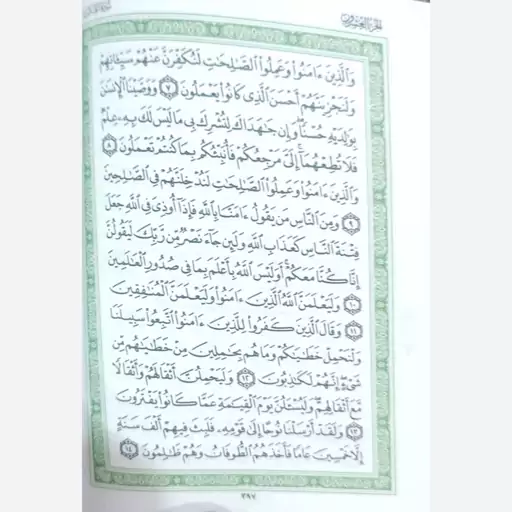 الجزء العشرون
وَٱلَّذِينَ ءَامَنُوا۟ وَعَمِلُوا۟ ٱلصَّـٰلِحَـٰتِ لَنُكَفِّرَنَّ عَنْهُمْ سَيِّـَٔاتِهِمْ
وَلَنَجْزِيَنَّهُمْ أَحْسَنَ ٱلَّذِى كَانُوا۟ يَعْمَلُونَ ٧ وَوَصَّيْنَا ٱلْإِنسَـٰنَ
بِوَٰلِدَيْهِ حُسْنًا وَإِن جَـٰهَدَاكَ لِتُشْرِكَ بِى مَا لَيْسَ لَكَ بِهِۦ عِلْمٌ
فَلَا تُطِعْهُمَآ إِلَىَّ مَرْجِعُكُمْ فَأُنَبِّئُكُم بِمَا كُنتُمْ تَعْمَلُونَ ٨
وَٱلَّذِينَ ءَامَنُوا۟ وَعَمِلُوا۟ ٱلصَّـٰلِحَـٰتِ لَنُدْخِلَنَّهُمْ فِى ٱلصَّـٰلِحِينَ
٩ وَمِنَ ٱلنَّاسِ مَن يَقُولُ ءَامَنَّا بِٱللَّهِ فَإِذَآ أُوذِىَ فِى ٱللَّهِ جَعَلَ
فِتْنَةَ ٱلنَّاسِ كَعَذَابِ ٱللَّهِ وَلَئِن جَآءَ نَصْرٌ مِّن رَّبِّكَ لَيَقُولُنَّ
إِنَّا كُنَّا مَعَكُمْ أَوَلَيْسَ ٱللَّهُ بِأَعْلَمَ بِمَا فِى صُدُورِ ٱلْعَـٰلَمِينَ
١٠ وَلَيَعْلَمَنَّ ٱللَّهُ ٱلَّذِينَ ءَامَنُوا۟ وَلَيَعْلَمَنَّ ٱلْمُنَـٰفِقِينَ
١١ وَقَالَ ٱلَّذِينَ كَفَرُوا۟ لِلَّذِينَ ءَامَنُوا۟ ٱتَّبِعُوا۟ سَبِيلَنَا
وَلْنَحْمِلْ خَطَـٰيَـٰكُمْ وَمَا هُم بِحَـٰمِلِينَ مِنْ خَطَـٰيَـٰهُم مِّن
شَىْءٍ إِنَّهُمْ لَكَـٰذِبُونَ ١٢ وَلَيَحْمِلُنَّ أَثْقَالَهُمْ وَأَثْقَالًا
مَّعَ أَثْقَالِهِمْ وَلَيُسْـَٔلُنَّ يَوْمَ ٱلْقِيَـٰمَةِ عَمَّا كَانُوا۟ يَفْتَرُونَ
١٣ وَلَقَدْ أَرْسَلْنَا نُوحًا إِلَىٰ قَوْمِهِۦ فَلَبِثَ فِيهِمْ أَلْفَ سَنَةٍ
إِلَّا خَمْسِينَ عَامًا فَأَخَذَهُمُ ٱلطُّوفَانُ وَهُمْ ظَـٰلِمُونَ ١٤
٣٩٧